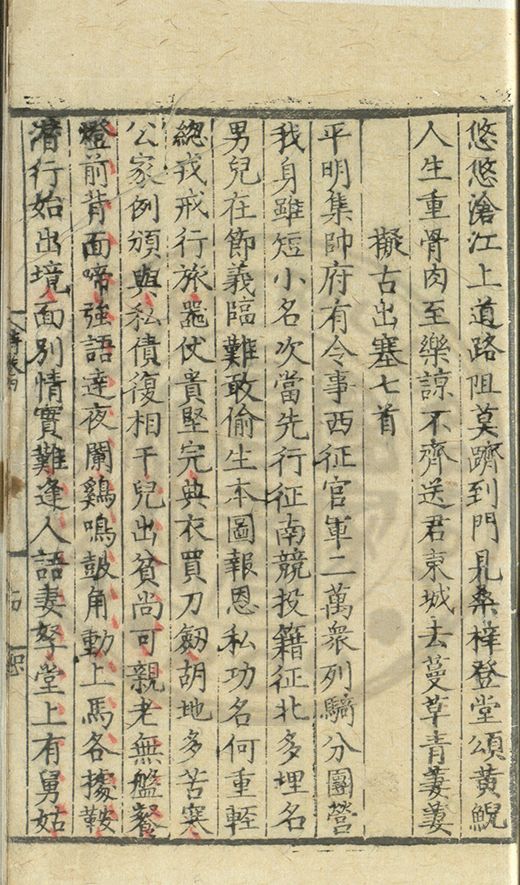 悠悠滄江上道路阻莫躋到門見桑梓登堂頌黃鯢
人生重骨肉至樂諒不齊送君東城去蔓草青萋萋
擬古出塞七首
平明集帥府有令事西征官軍二萬衆列騎分團營
我身雖短小名次當先行征南競投籍征北多埋名
男兒在節義臨難敢偷生本圖報恩私功名何重輊
總戎戒行旅噐仗貴堅完典衣買刀劒胡地多苦寒
公家例頒與私債復相干兒出貧尚可親老無盤餐
燈前背面啼強語達夜闌鷄鳴鼓角動上馬各據鞍
潛行始出境面別情實難逢人語妻孥堂上有舅姑